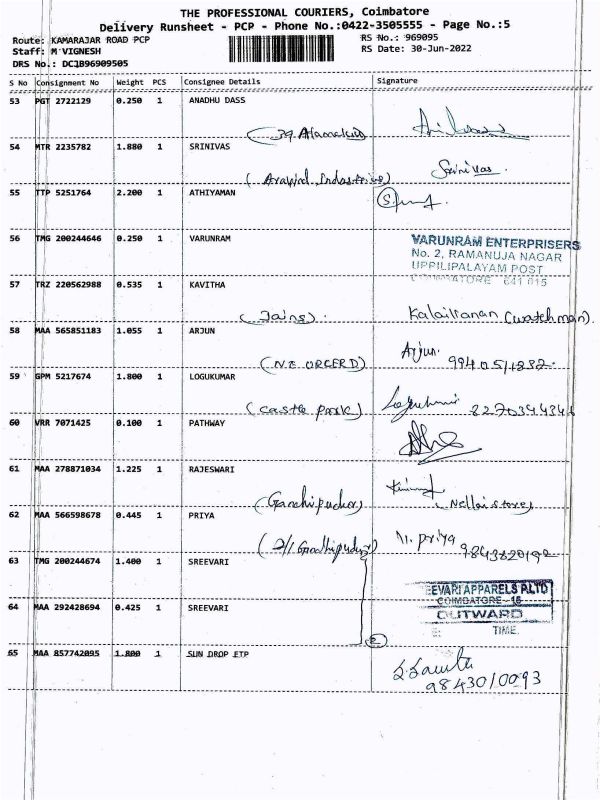 THE PROFESSIONAL COURIERS, Coimbatore
Delivery Runsheet - PCP - Phone No.:0422-3505555 - Page No.:5
Route: KAMARAJAR ROAD PCP
RS No.: 969095
Staff: M VIGNESH
RS Date: 30-Jun-2022
DRS No.: DC1B96909505
S No Consignment No Weight PCS Consignee Details Signature
53 PGT 2722129 0.250 1 ANADHU DASS
54 MTR 2235782 1.880 1 SRINIVAS
(Aravind Industries) Srinivas.
55 TTP 5251764 2.200 1 ATHIYAMAN
56 TMG 200244646 0.250 1 VARUNRAM
VARUNRAM ENTERPRISERS
No. 2, RAMANUJA NAGAR
UPPILIPALAYAM POST
COIMBATORE 641 015
57 TRZ 220562988 0.535 1 KAVITHA
(Jains). Kalaivanan (watchman).
58 MAA 565851183 1.055 1 ARJUN
Arjun.
59 GPM 5217674 1.800 1 LOGUKUMAR
(castle park)
60 VRR 7071425 0.100 1 PATHWAY
61 MAA 278871034 1.225 1 RAJESWARI
(Gandhipudur) Nellai stores
62 MAA 566598678 0.445 1 PRIYA
priya
63 TMG 200244674 1.400 1 SREEVARI
64 MAA 292428694 0.425 1 SREEVARI
EEVARI APPARELS P.LTD
COIMBATORE - 15
OUTWARD
E: TIME.
2
65 MAA 857742095 1.800 1 SUN DROP ETP
9843010093